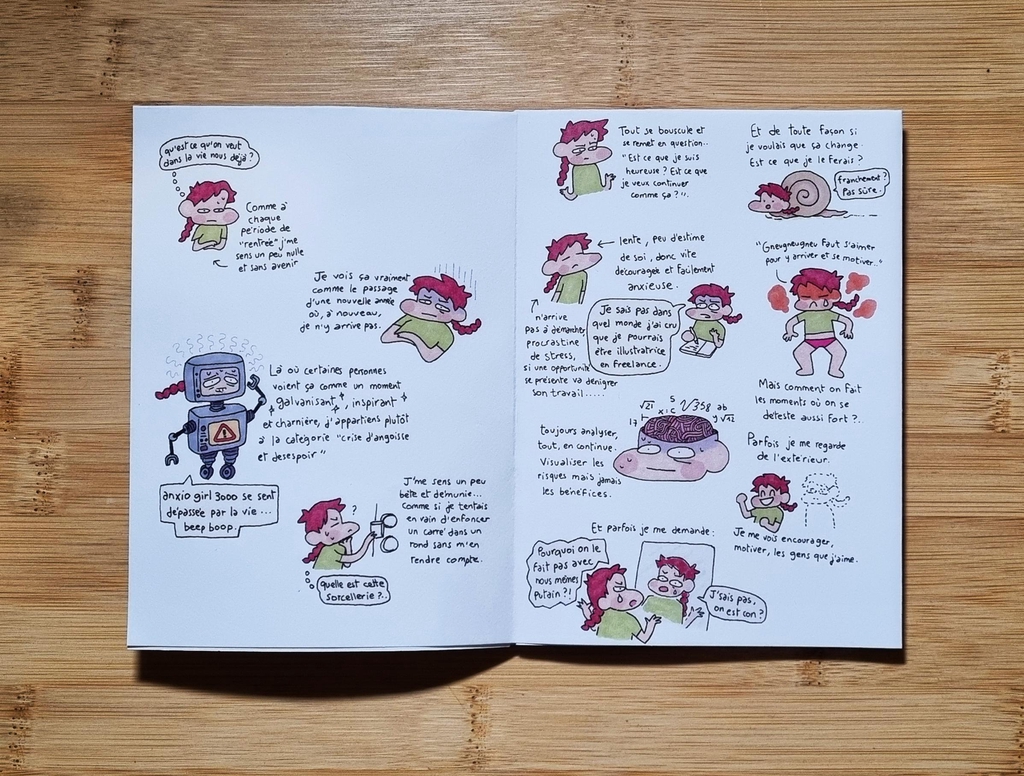 qu'est ce qu'on veut
dans la vie nous déjà ?
Comme à
chaque
période de
"rentrée" j'me
sens un peu nulle
et sans avenir
Je vois ça vraiment
comme le passage
d'une nouvelle année
où, à nouveau,
je n'y arrive pas.
Là où certaines personnes
voient ça comme un moment
galvanisant, inspirant
et charnière, j'appartiens plutôt
à la catégorie "crise d'angoisse
et desespoir"
anxio girl 3000 se sent
dépassée par la vie ...
beep boop.
J'me sens un peu
bête et démunie...
Comme si je tentais
en vain d'enfoncer
un carré dans un
rond sans m'en
rendre compte.
?
quelle est cette
sorcellerie ?..
Tout se bouscule et
se remet en question..
"Est ce que je suis
heureuse ? Est ce que
je veux continuer
comme ça ?".
Et de toute façon si
je voulais que ça change
Est ce que je le ferais ?
Franchement ?
Pas sûre.
lente, peu d'estime
de soi, donc vite
découragée et facilement
anxieuse.
n'arrive
pas à démarcher
procrastine
de stress,
si une opportunité
se présente va dénigrer
son travail.....
Je sais pas dans
quel monde j'ai cru
que je pourrais
être illustratrice
en freelance.
"Gneugneugneu faut s'aimer
pour y arriver et se motiver.."
Mais comment on fait
les moments où on se
déteste aussi fort ?..
toujours analyser,
tout, en continue.
Visualiser les
risques mais jamais
les bénéfices.
√21 5 √358 ab
17 x÷c y√42
Parfois je me regarde
de l'extérieur.
Je me vois encourager,
motiver, les gens que j'aime.
Et parfois je me demande :
Pourquoi on le
fait pas avec
nous mêmes
Putain ?!
J'sais pas,
on est con ?